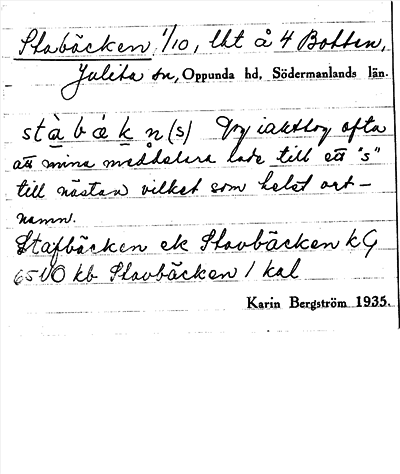 Stabäcken, 1/10, lht å 4 Botten,
Julita sn, Oppunda hd, Södermanlands län.
stàbǽkn(s) Jag iakttog ofta
att mina meddelare lade till ett "s"
till nästan vilket som helst ort-
namn.
Stafbäcken ek Stavbäcken kG
65 VO kb Stavbäcken / kal
Karin Bergström 1935.